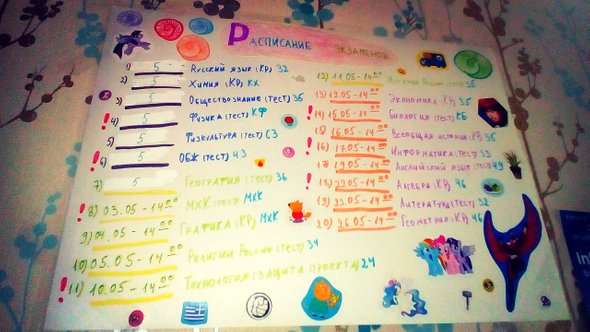 Расписание экзаменов
1) 5 Русский язык (КР) 32
2) 5 Химия (КР) КХ
3) 5 Обществознание (тест) 35
4) 5 Физика (тест) КФ
5) 5 Физкультура (тест) СЗ
6) 5 ОБЖ (тест) 43
7) 5 География (тест) 36
8) 03.05 - 14⁰⁰ МХК (тест) МХК
9) 04.05 - 14⁰⁰ Графика (КР) МХК
10) 05.05 - 14⁰⁰ Религии России (тест) 34
11) 10.05 - 14⁰⁰ Технология (защита проекта) 24
12) 11.05 - 14⁰⁰ История России (тест) 35
13) 12.05 - 14⁰⁰ Экономика (КР) 35
14) 15.05 - 14⁰⁰ Биология (тест) КБ
15) 16.05 - 14⁰⁰ Всеобщая история (КР) 35
16) 17.05 - 14⁰⁰ Информатика (тест) 33
17) 19.05 - 14⁰⁰ Английский язык (тест)
18) 22.05 - 14⁰⁰ Алгебра (КР) 46
19) 23.05 - 14⁰⁰ Литература (тест) 32
20) 26.05 - 14⁰⁰ Геометрия (КР) 46